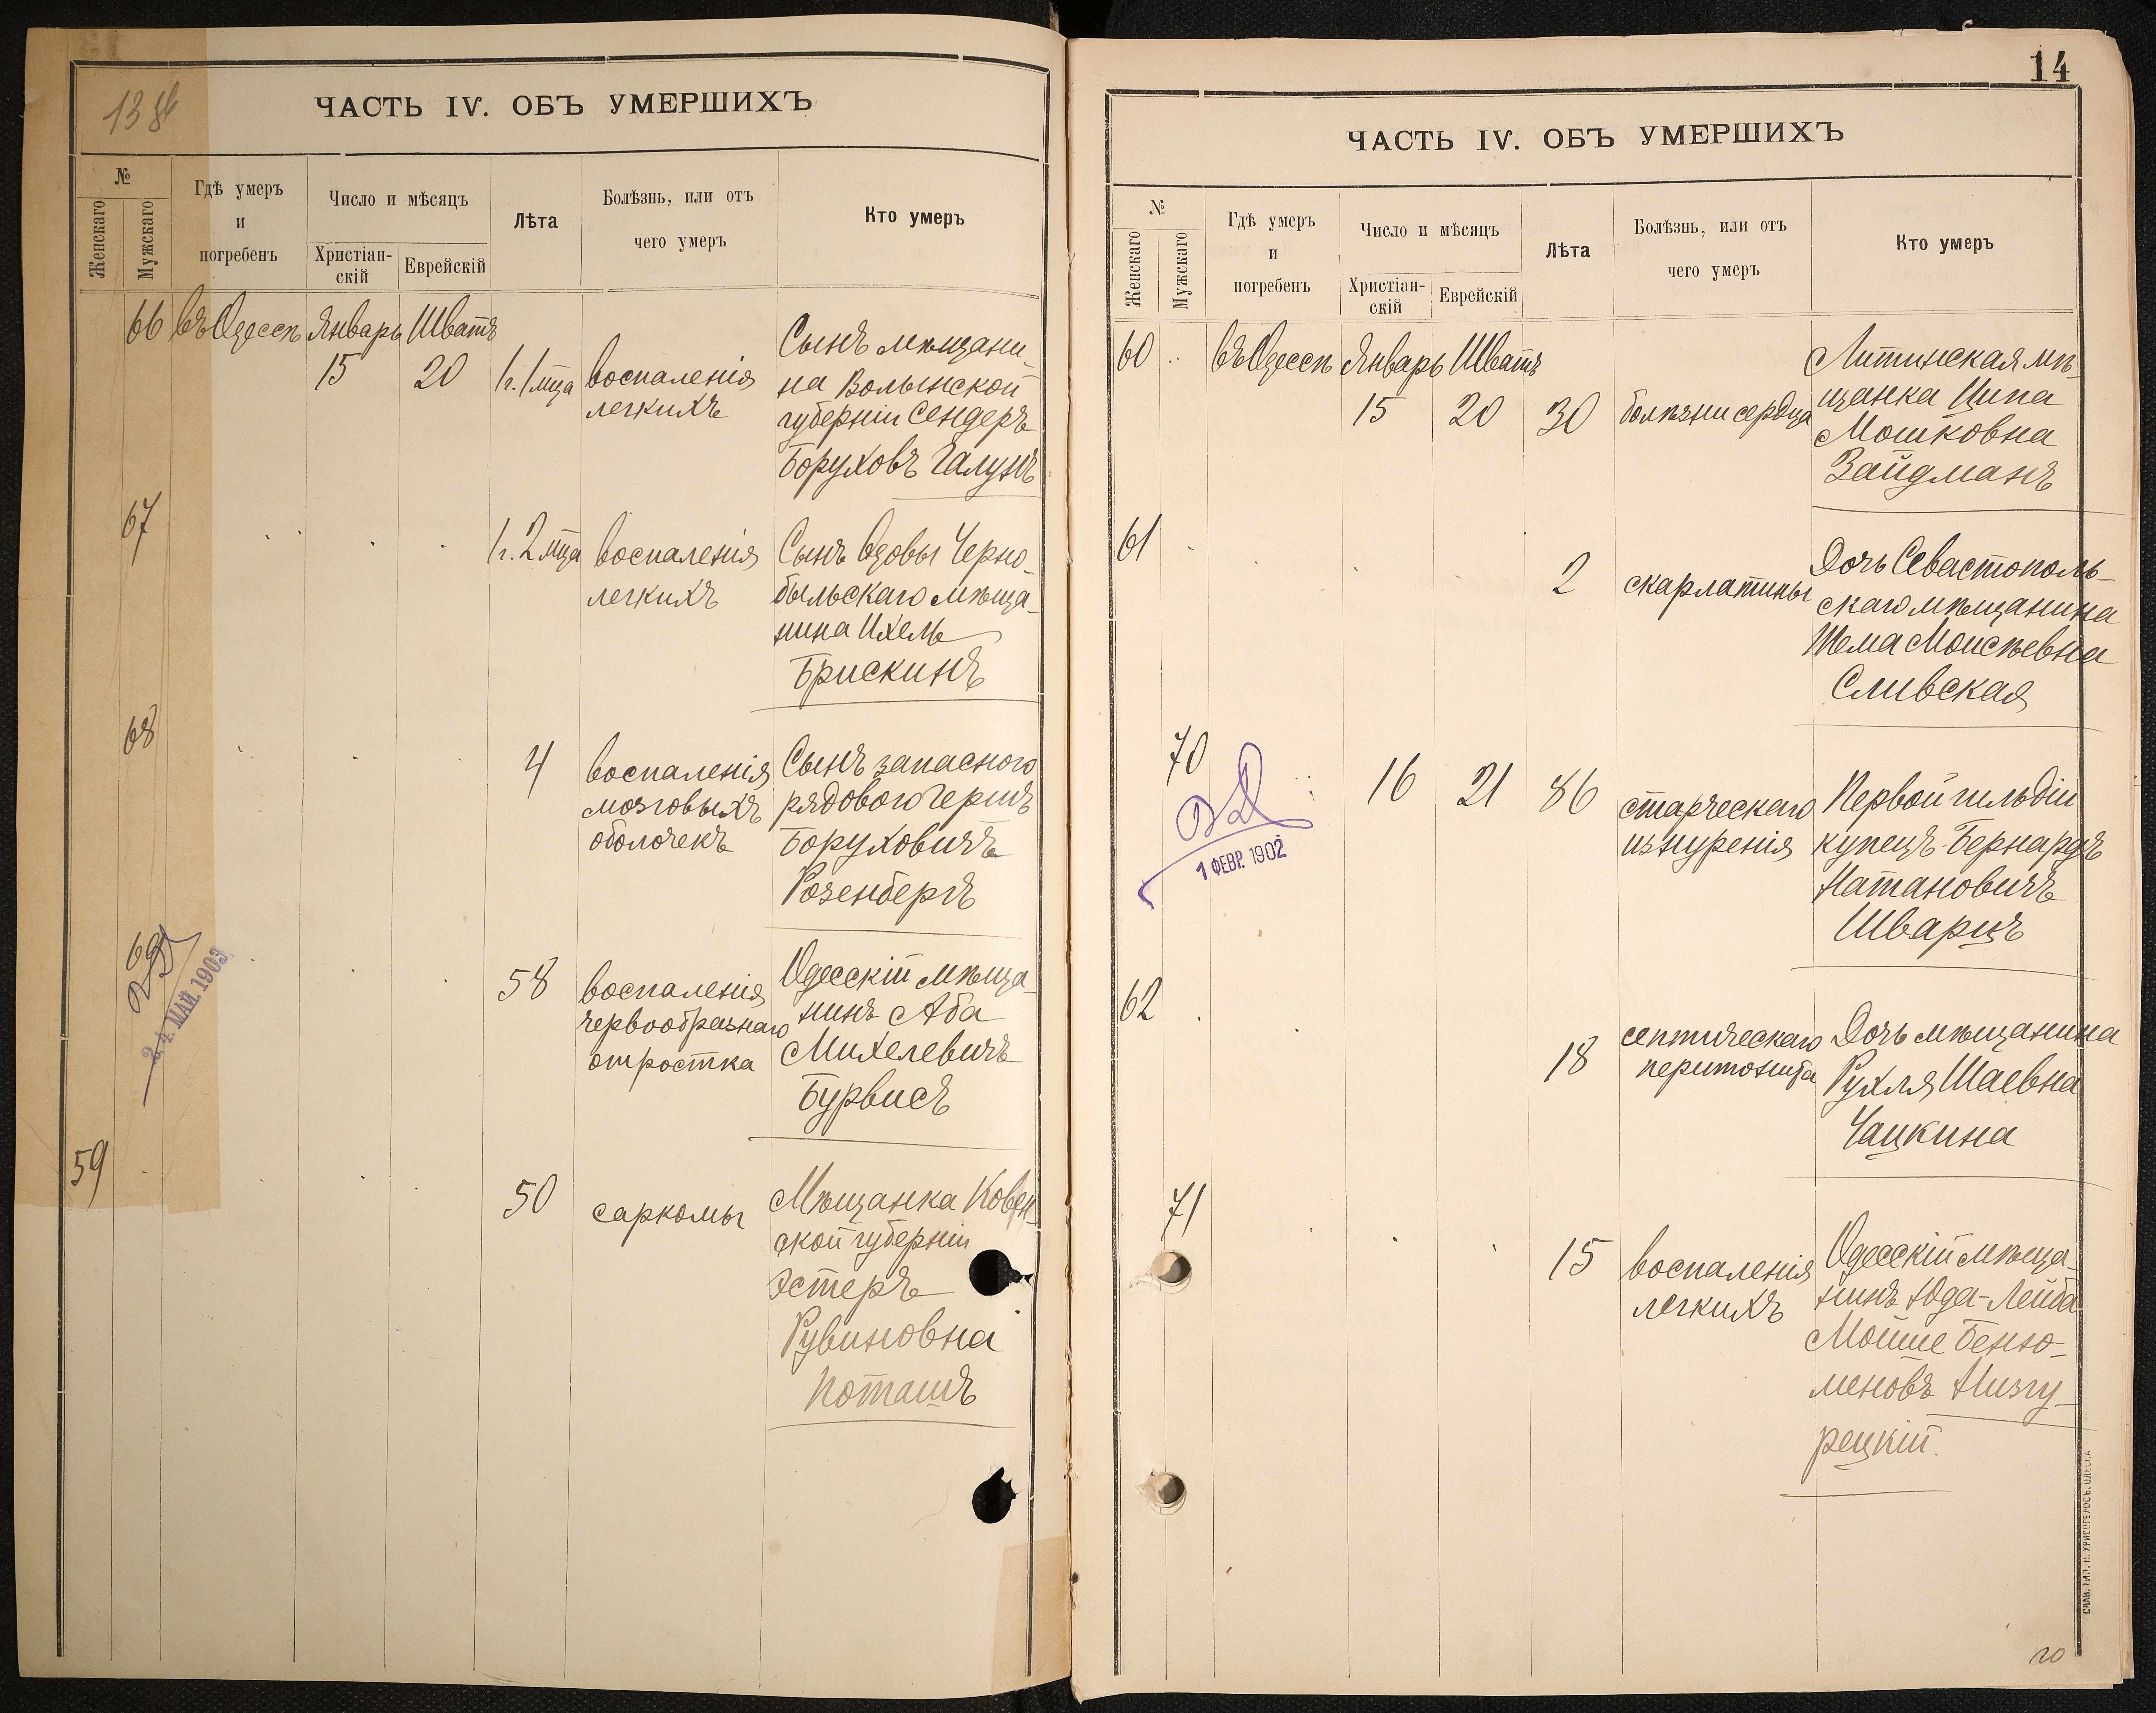 13 об
ЧАСТЬ IV. ОБЪ УМЕРШИХЪ
№
Женскаго
Мужскаго
Гдѣ умеръ
и
погребенъ
Число и мѣсяцъ
Христіан-
скій
Еврейскій
Лѣта
Болѣзнь, или отъ
чего умеръ
Кто умеръ
66
въ Одессѣ
Январь
15
Шватъ
20
1 г. 1 мца
воспаленія
легкихъ
Сынъ мѣщани-
на Волынской
губерніи Сендеръ
Боруховъ Галунъ
67
1 г. 2 мца
воспаленія
легкихъ
Сынъ вдовы Черно-
быльскаго мѣща-
нина Ихель
Брискинъ
68
4
воспаленія
мозговыхъ
оболочекъ
Сынъ запасного
рядового Гершъ
Боруховичъ
Розенбергъ
69
24 МАЙ. 1903
58
воспаленія
червообразнаго
отростка
Одесскій мѣща-
нинъ Аба
Михелевичъ
Бурвисъ
59
50
саркомы
Мѣщанка Ковен-
ской губерніи
Эстеръ
Рувиновна
Поташъ
14
ЧАСТЬ IV. ОБЪ УМЕРШИХЪ
№
Женскаго
Мужскаго
Гдѣ умеръ
и
погребенъ
Число и мѣсяцъ
Христіан-
скій
Еврейскій
Лѣта
Болѣзнь, или отъ
чего умеръ
Кто умеръ
60
въ Одессѣ
Январь
15
Шватъ
20
30
болѣзни сердца
Литинская мѣ-
щанка Ципа
Мошковна
Зайдманъ
61
2
скарлатины
Дочь Севастополь-
скаго мѣщанина
Тема Моисѣевна
Сливская
70
1 ФЕВР. 1902
16
21
86
старческаго
изнуренія
Первой гильдіи
купецъ Бернардъ
Натановичъ
Шварцъ
62
18
септическаго
перитонита
Дочь мѣщанина
Рухля Шаевна
Чацкина
71
15
воспаленія
легкихъ
Одесскій мѣща-
нинъ Юда-Лейба
Мойше Беню-
меновъ Низгу-
рецкій.
СЛАВ. ТИП. Н. ХРИСОГЕЛОСЪ. ОДЕССА